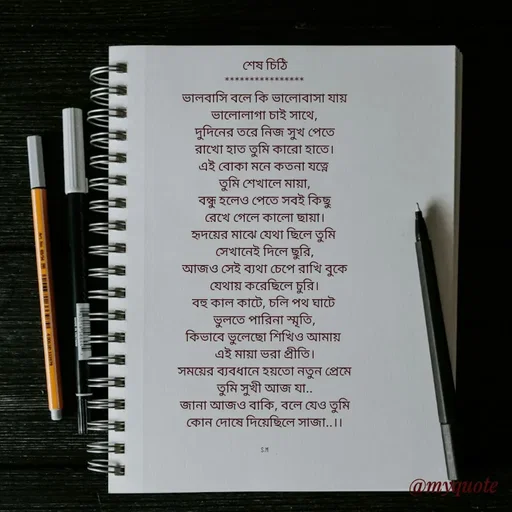 শেষ চিঠি
****************
ভালবাসি বলে কি ভালোবাসা যায়
ভালোলাগা চাই সাথে,
দুদিনের তরে নিজ সুখ পেতে
রাখো হাত তুমি কারো হাতে।
এই বোকা মনে কতনা যত্নে
তুমি শেখালে মায়া,
বন্ধু হলেও পেতে সবই কিছু
রেখে গেলে কালো ছায়া।
হৃদয়ের মাঝে যেথা ছিলে তুমি
সেখানেই দিলে ছুরি,
আজও সেই ব্যথা চেপে রাখি বুকে
যেথায় করেছিলে চুরি।
বহু কাল কাটে, চলি পথ ঘাটে
ভুলতে পারিনা স্মৃতি,
কিভাবে ভুলেছো শিখিও আমায়
এই মায়া ভরা প্রীতি।
সময়ের ব্যবধানে হয়তো নতুন প্রেমে
তুমি সুখী আজ যা..
জানা আজও বাকি, বলে যেও তুমি
কোন দোষে দিয়েছিলে সাজা..।।
S.M
@myquote